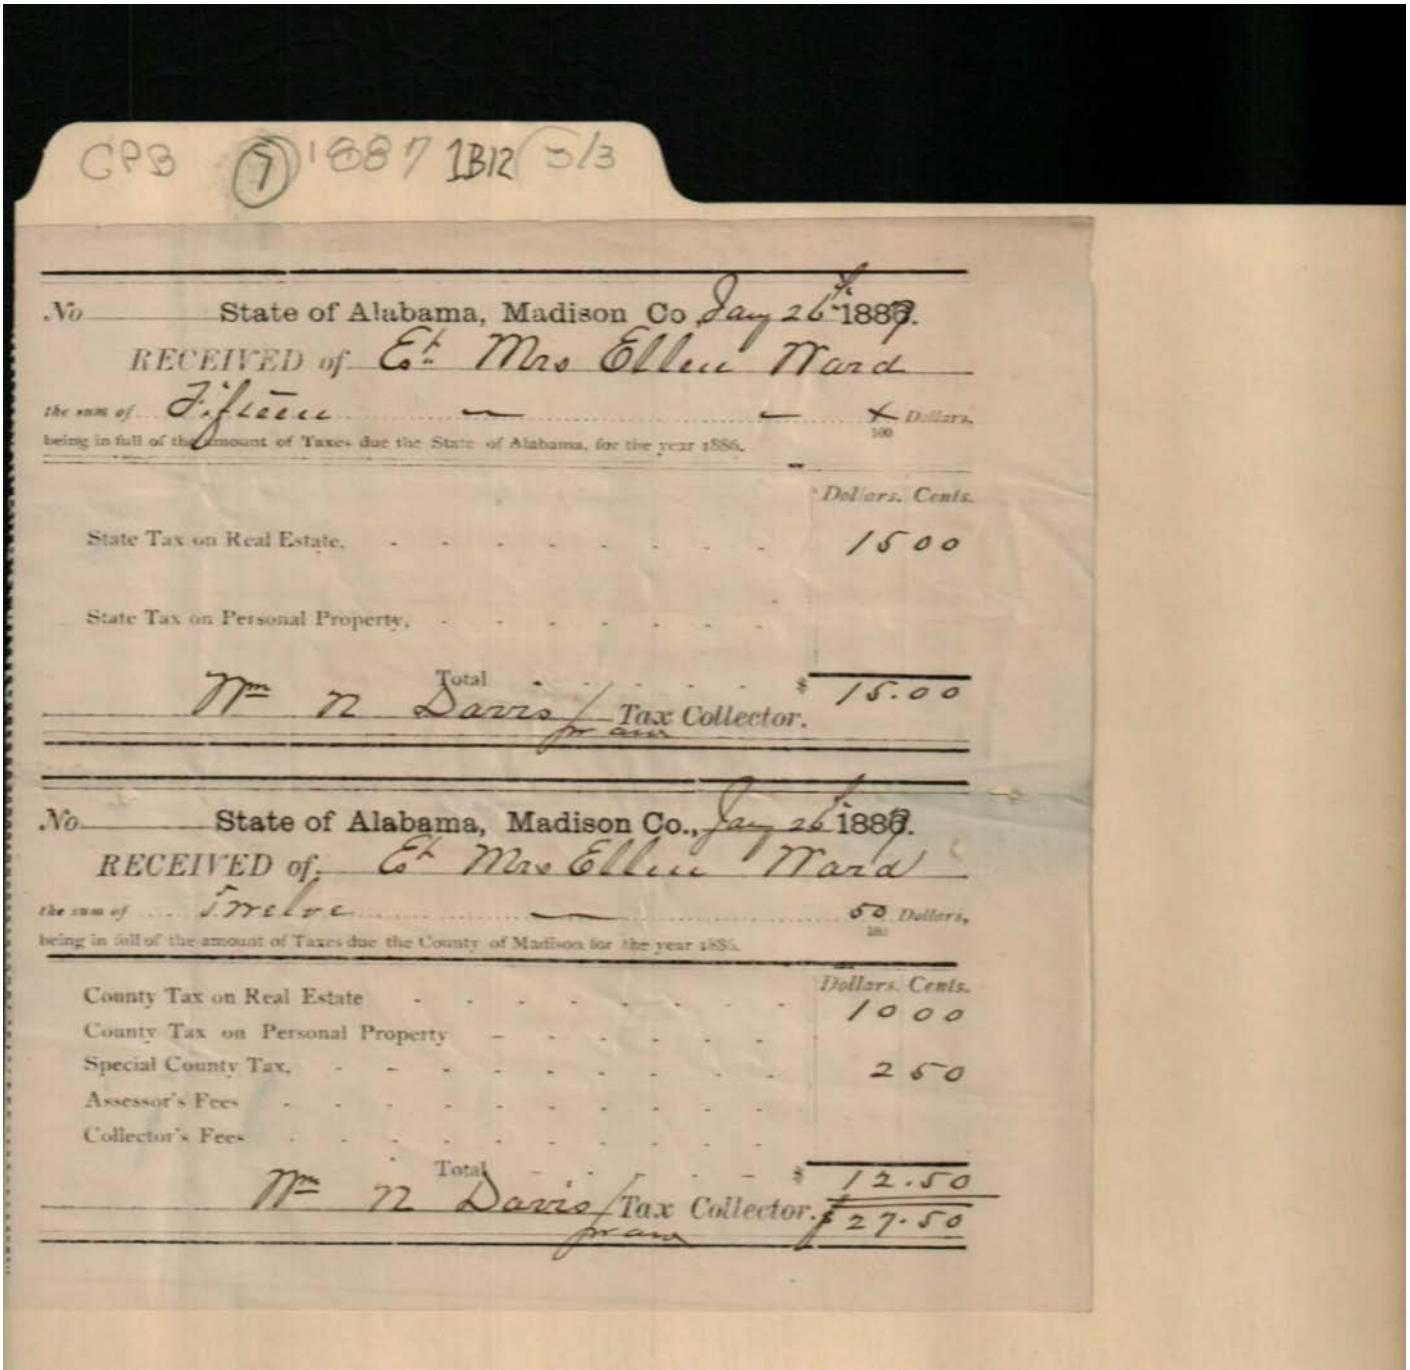 CPB 7 1887 1B12 5/3
No State of Alabama, Madison Co Jany 26th 1887.
RECEIVED of Est. Mrs Ellen Ward
the sum of Fifteen — — x/100 Dollars.
being in full of the amount of Taxes due the State of Alabama, for the year 1886.
Dollars. Cents.
State Tax on Real Estate, 15 00
State Tax on Personal Property,
Total $ 15.00
Wm N Davis / Tax Collector.
No State of Alabama, Madison Co., Jany 26th 1887.
RECEIVED of Est Mrs Ellen Ward
the sum of Twelve — 50/100 Dollars,
being in full of the amount of Taxes due the County of Madison for the year 1886.
Dollars. Cents.
County Tax on Real Estate 10 00
County Tax on Personal Property
Special County Tax, 2 50
Assessor's Fees
Collector's Fees
Total $ 12.50
Wm N Davis / Tax Collector. $ 27.50